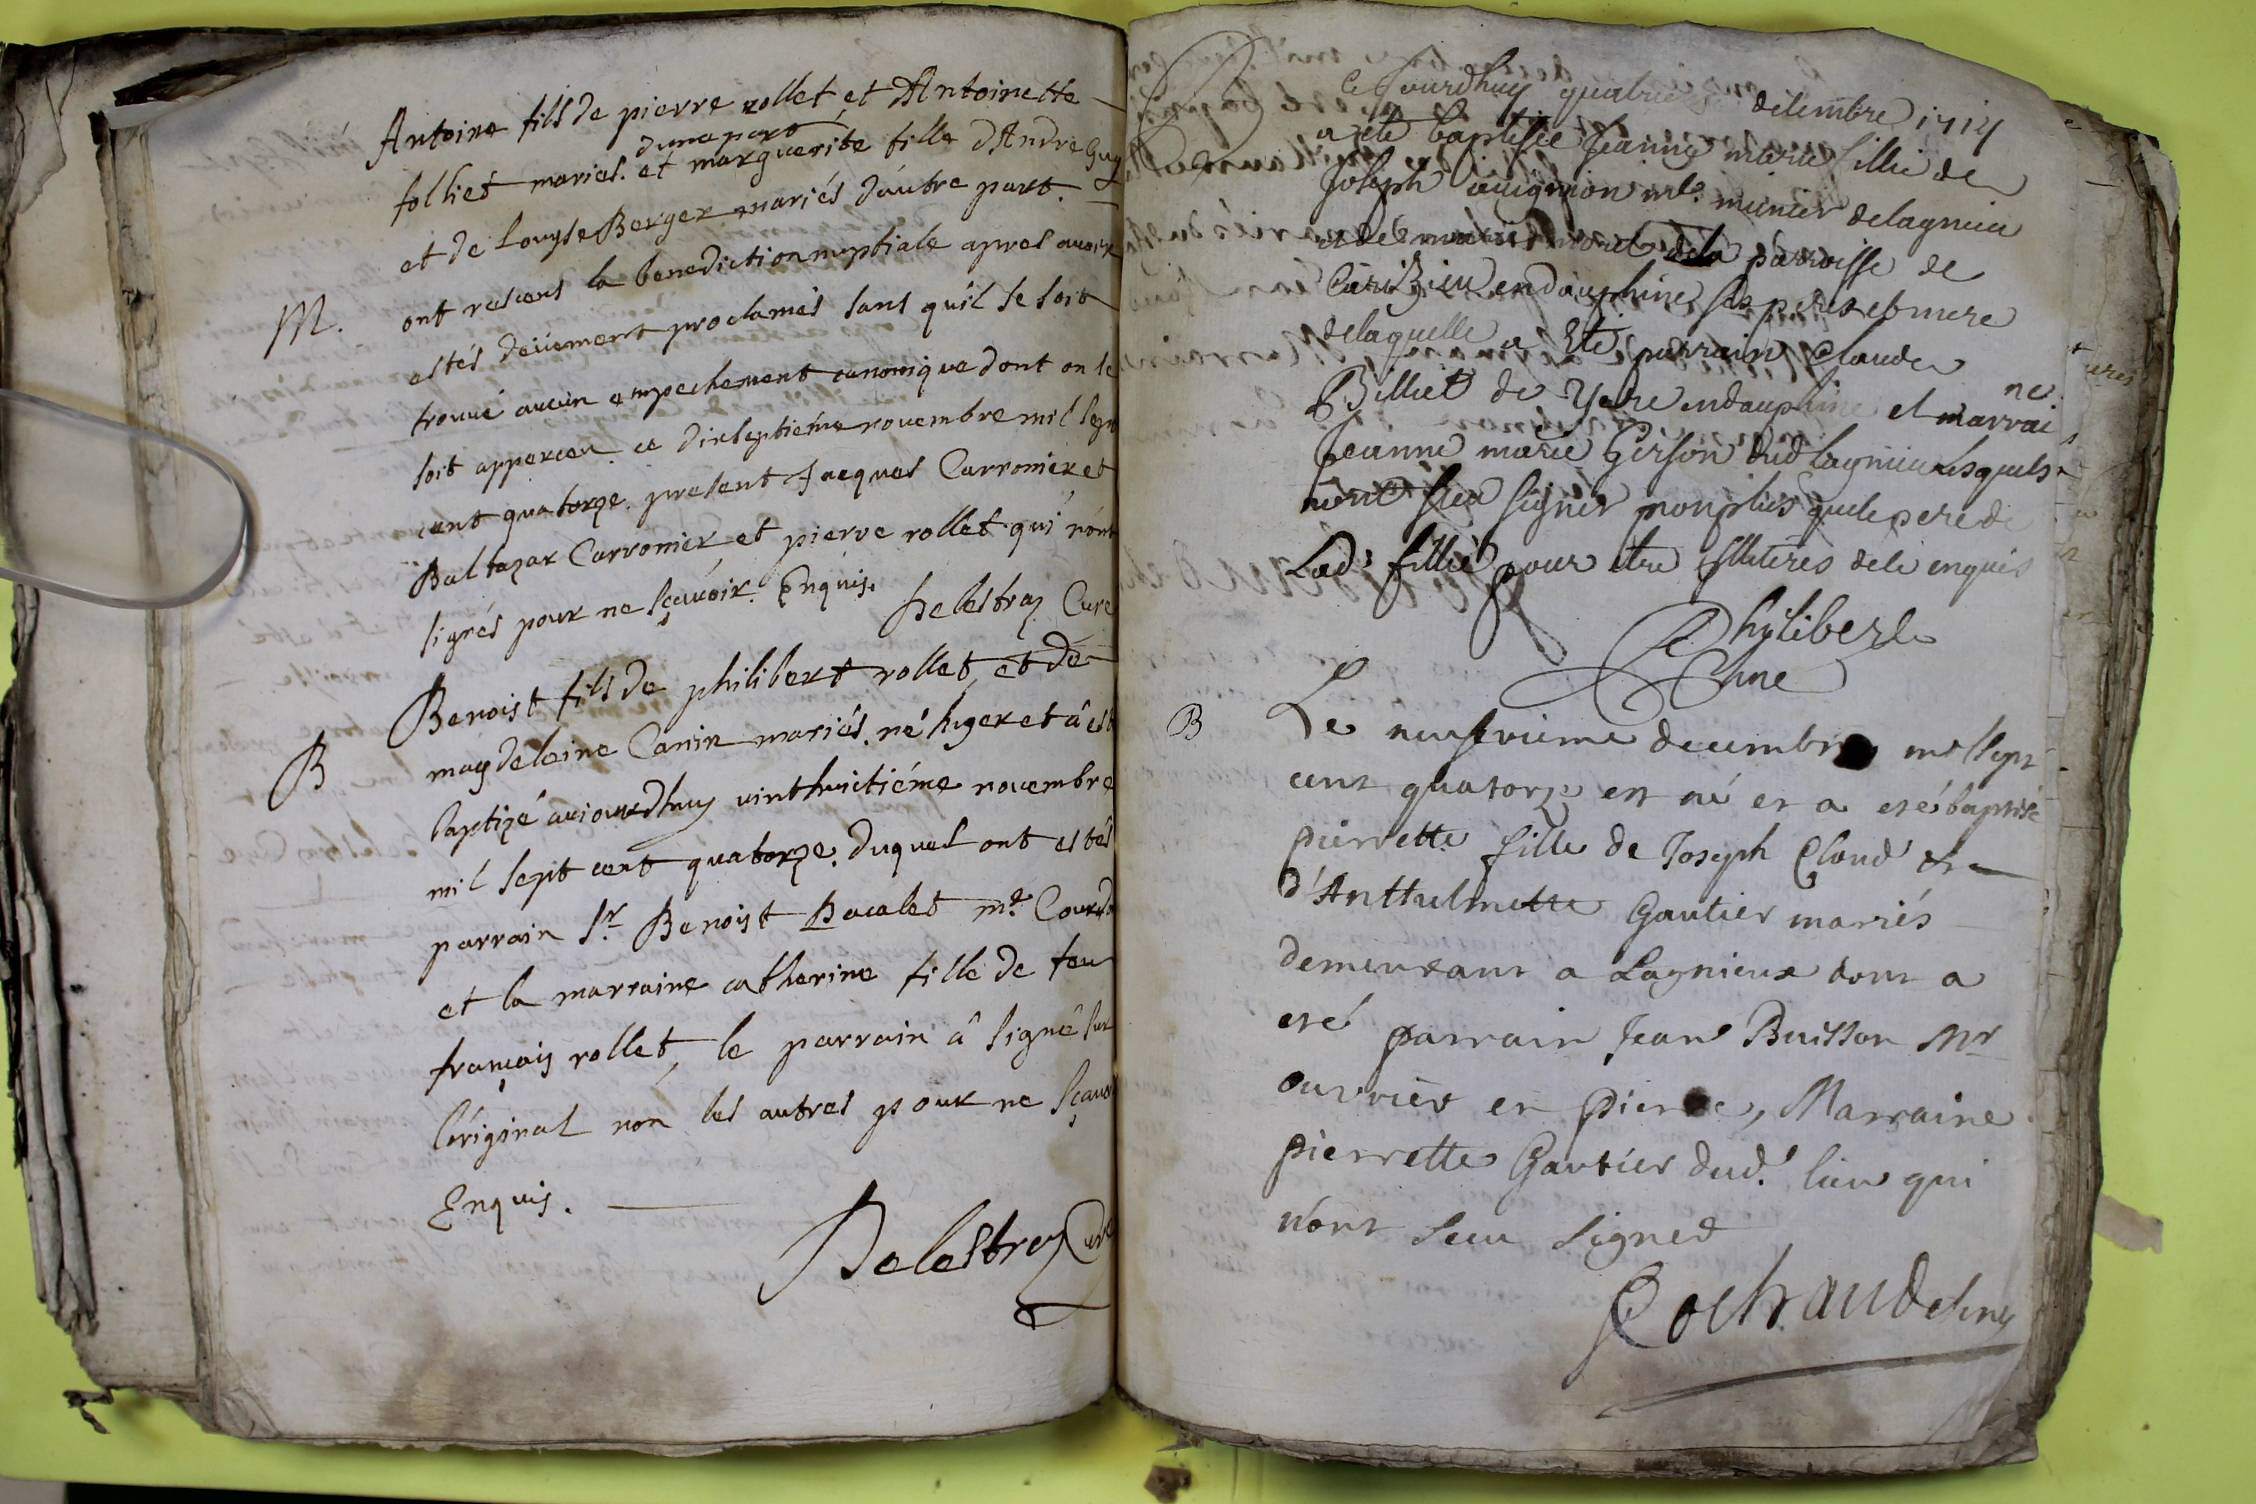 Antoine fils de pierre rollet et dAntoinette
folliet mariés. dune part et marguerite fille dAndré Guy
et de Louyse Berger mariés dáutre part.
M.
ont resceus la benediction nuptiale apres auoir
estés deüement proclamés sans qu'il se soit
trouué aucun empechement canonique dont on se
soit apperceu ce dixseptiéme nouembre mil sept
cent quatorze. present Jacques Carronier et
Baltazar Carronier et pierre rollet qui n'ont
signés pour ne sçáuoir. Enquis.
Delestraz Curé
Benoist fils de philibert rollet, et de
B
magdeleine Canin mariés. né hyer et â esté
baptizé auiourdhuy uinthuictiéme nouembre
mil sept cent quatorze. duquel ont estés
parrain Sr. Benoist Bacalet me.
et la marraine catherine fille de feu
françois rollet, le parrain â signé sur
l'original nón les autres pour ne sçauoir
Enquis.
Delestraz Curé
ce Jourdhuy decembre 1714
a eté baptisée Jeanne marie fillie de
Joseph auignion me. munier delagnieu
et de marie de la parroisse de
en dauphiné ses pere et mere
delaquelle a Eté parrain Claude
Billiet de en dauphiné et marrai
ne
Jeanne marie Gerson dud lagnieu lesquels
nont sceu signer nonplus que le pere de
Lad. fillie pour étre illiterés de ce enquis
Philibert
Cure
B
Le neufvieme decembre mil sept
cent quatorze est né et a esté baptisé
pierrette fille de Joseph Cloud et
d'Anthelmette Gautier mariés
demeurant a Lagnieux dont a
eté parrain Jean Buisson Mr
ouvrier en pierre, Marraine
pierrette Gautier dud. lieu qui
n'ont sceu signer
Cochraud